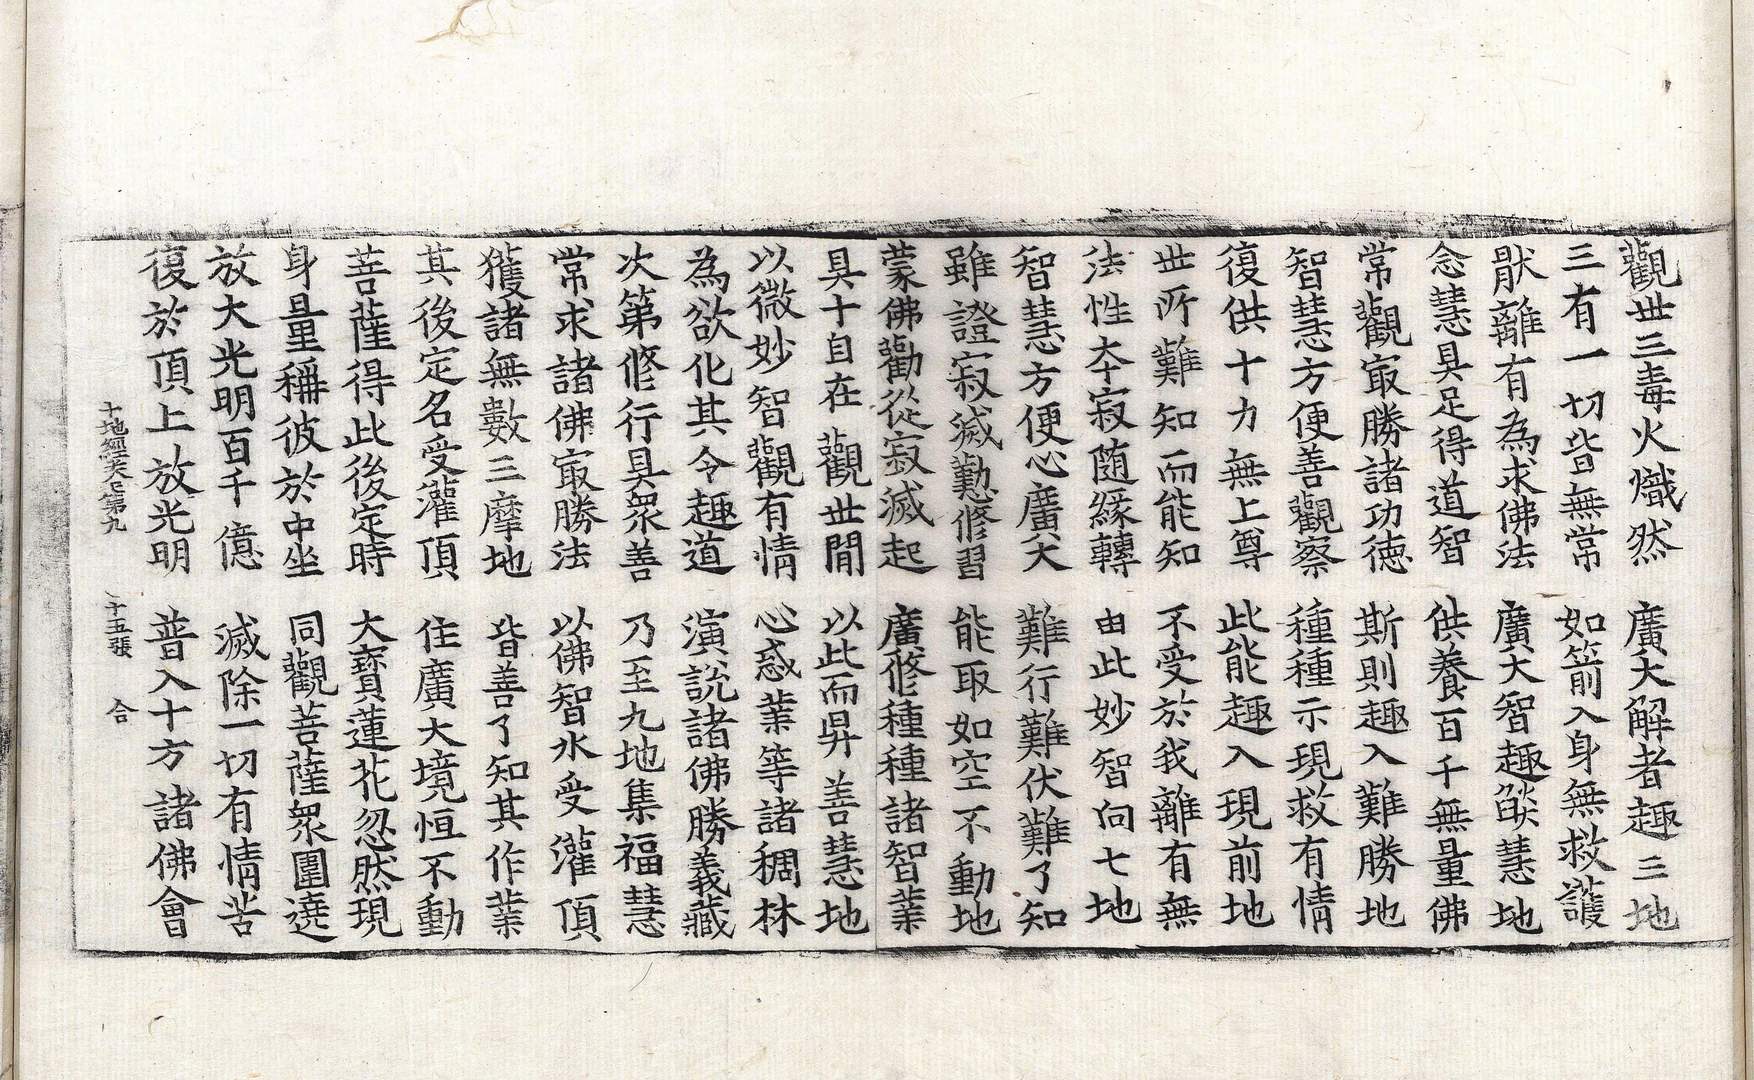 觀世三毒火熾然　廣大解者趣三地
三有一切皆無常　如箭入身無救護
猒離有為求佛法　廣大智趣焰慧地
念慧具足得道智　供養百千無量佛
常觀㝡勝諸功徳　斯則趣入難勝地
智慧方便善觀察　種種示現救有情
復供十力無上尊　此能趣入現前地
世所難知而能知　不受於我離有無
法性本寂隨緣轉　由此妙智向七地
智慧方便心廣大　難行難伏難了知
雖證寂滅勤修習　能取如空不動地
蒙佛勸從寂滅起　廣修種種諸智業
具十自在觀世間　以此而昇善慧地
以微妙智觀有情　心惑業等諸稠林
為欲化其令趣道　演說諸佛勝義藏
次第修行具衆善　乃至九地集福慧
常求諸佛㝡勝法　以佛智水受灌頂
獲諸無數三摩地　皆善了知其作業
其後定名受灌頂　住廣大境恒不動
菩薩得此後定時　大寶蓮花忽然現
身量稱彼於中坐　同觀菩薩衆圍遶
放大光明百千億　滅除一切有情苦
復於頂上放光明　普入十方諸佛會
十地經第九　十五張　合